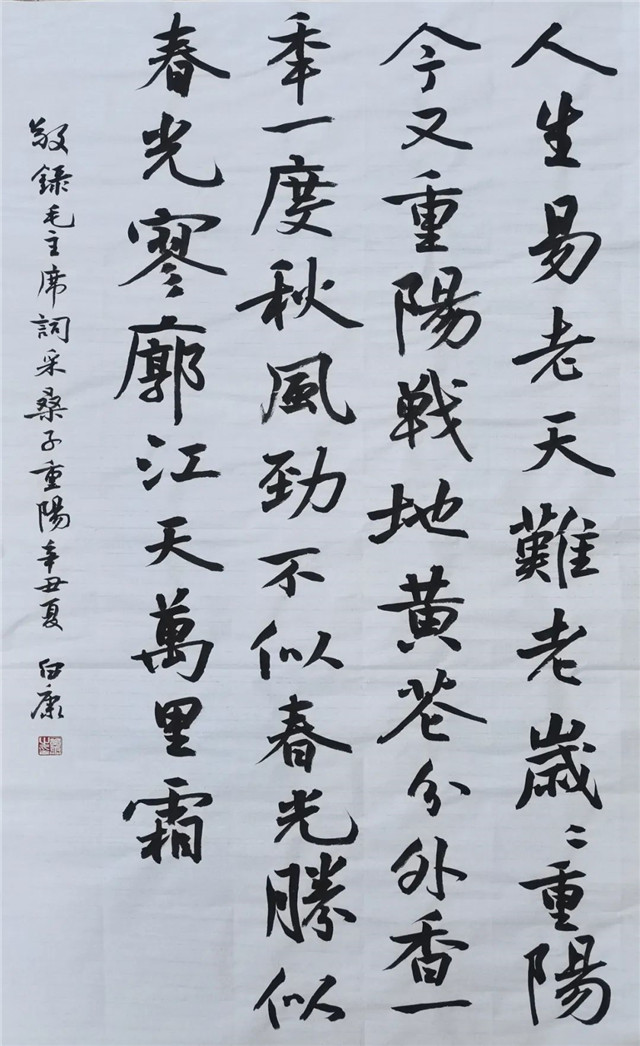 人生易老天難老歲〻重陽
今又重陽戰地黄花分外香一
年一度秋風勁不似春光勝似
春光寥廓江天萬里霜
敬錄毛主席詞采桑子重陽辛丑夏 白康